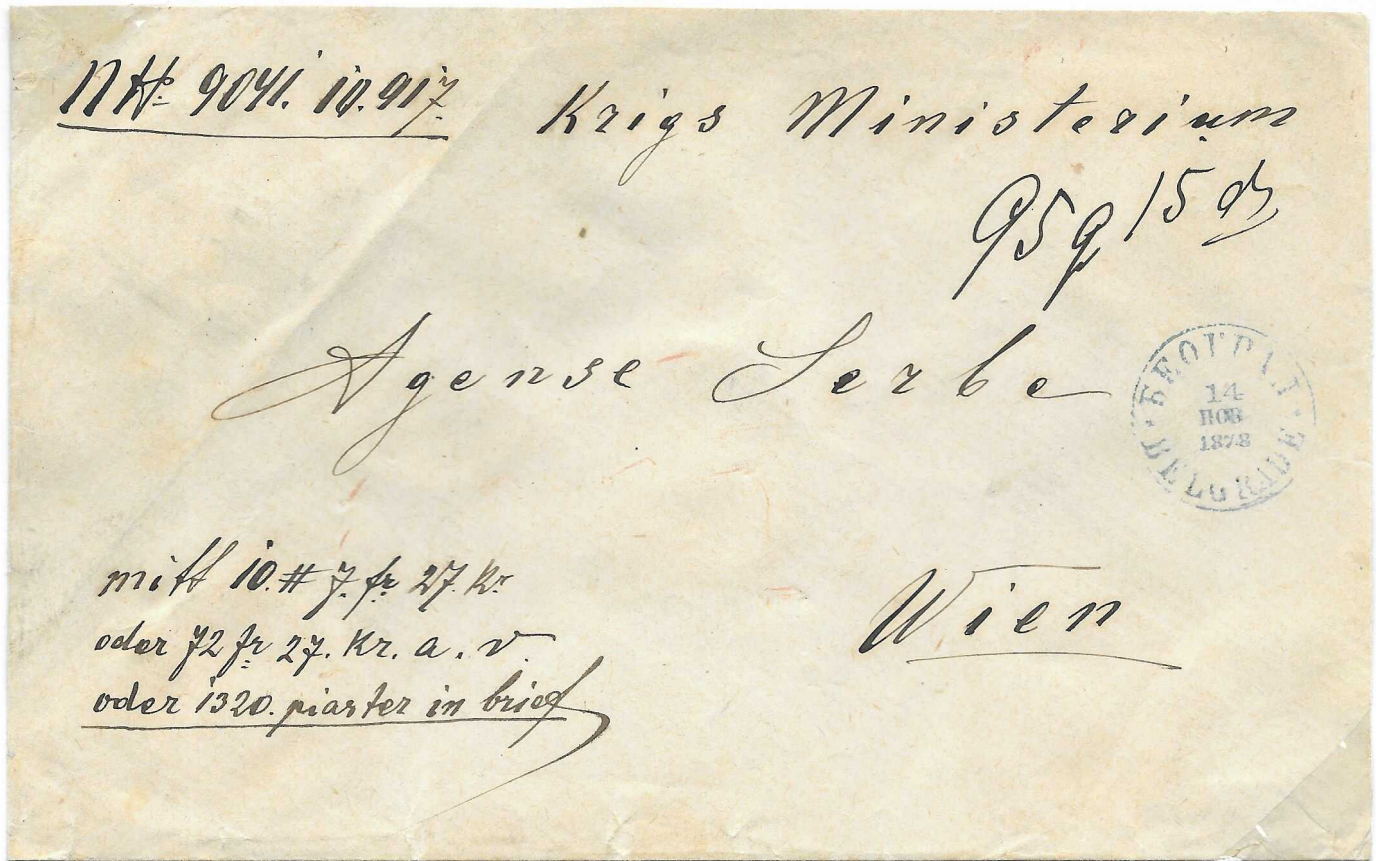 NHo 9041. 10.917.
Krigs Ministerium
95 g 15
Agense Serbe
БЕОГРАД
14
НОВ
1878
BELGRADE
mitt 10.# 7. fr 27. Kr
oder 72 fr 27. Kr. a. v.
oder 1320. piaster in brief
Wien